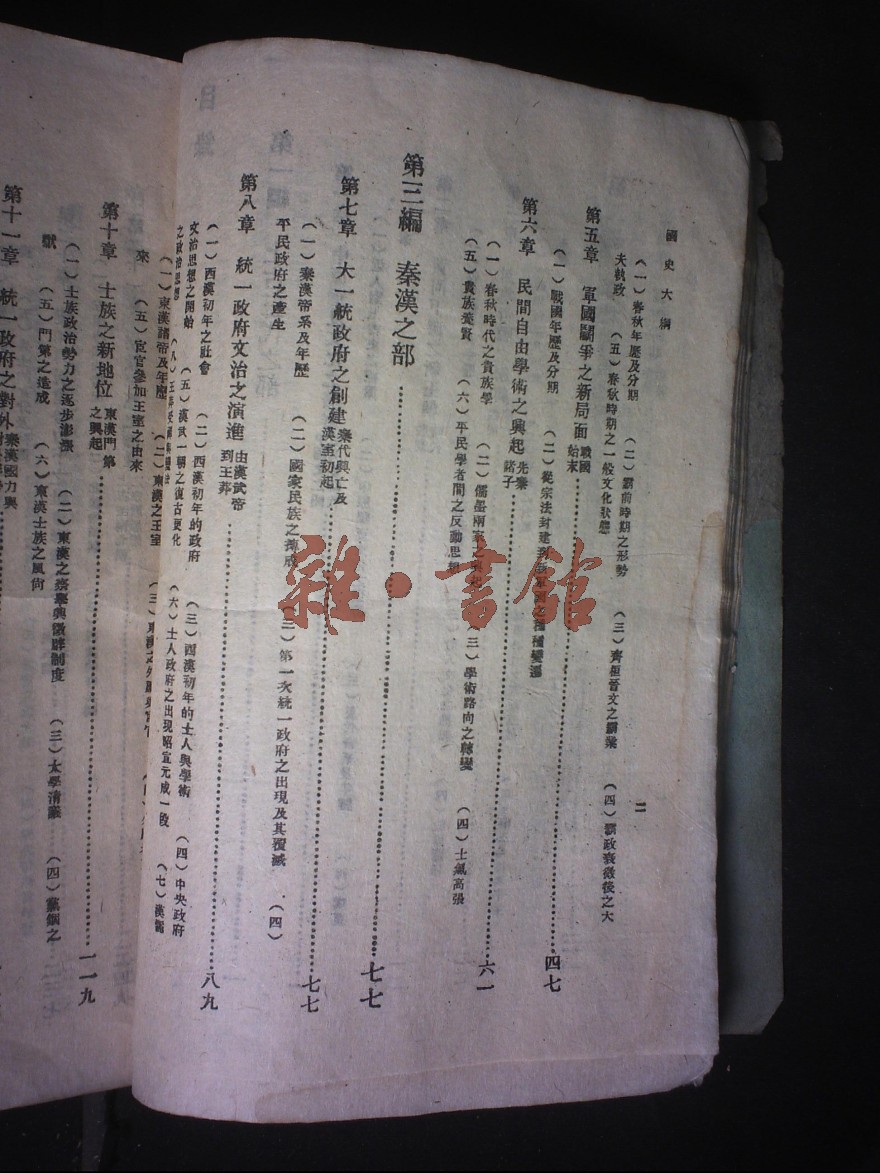 國史大綱
二
(一)春秋年歷及分期 (二)霸前時期之形勢 (三)齊桓晉文之霸業 (四)霸政衰微後之大
夫執政 (五)春秋時期之一般文化狀態
第五章 軍國鬭爭之新局面 戰國始末 四七
(一)戰國年歷及分期 (二)從宗法封建到
第六章 民間自由學術之興起 先秦諸子 六一
(一)春秋時代之貴族學 (二)儒墨兩家之興起 (三)學術路向之轉變 (四)士氣高張
(五)貴族養賢 (六)平民學者間之反動思想
第三編 秦漢之部 七七
第七章 大一統政府之創建 秦代興亡及漢室初起 七七
(一)秦漢帝系及年歷 (二)國家民族之摶成 (三)第一次統一政府之出現及其覆滅 (四)
平民政府之產生
第八章 統一政府文治之演進 由漢武帝到王莽 八九
(一)西漢初年之社會 (二)西漢初年的政府 (三)西漢初年的士人與學術 (四)中央政府
文治思想之開始 (五)漢武一朝之復古更化 (六)士人政府之出現昭宣元成一段 (七)漢儒
之政治思想
(一)東漢諸帝及年歷 (二)東漢之王室 (三)東漢之外戚與宦官
來 (五)宦官參加王室之由來
第十章 士族之新地位 東漢門第之興起 一一九
(一)士族政治勢力之逐步膨漲 (二)東漢之察舉與徵辟制度 (三)太學清議 (四)黨錮之
獄 (五)門第之造成 (六)東漢士族之風尚
第十一章 統一政府之對外 秦漢國力與
雜·書館